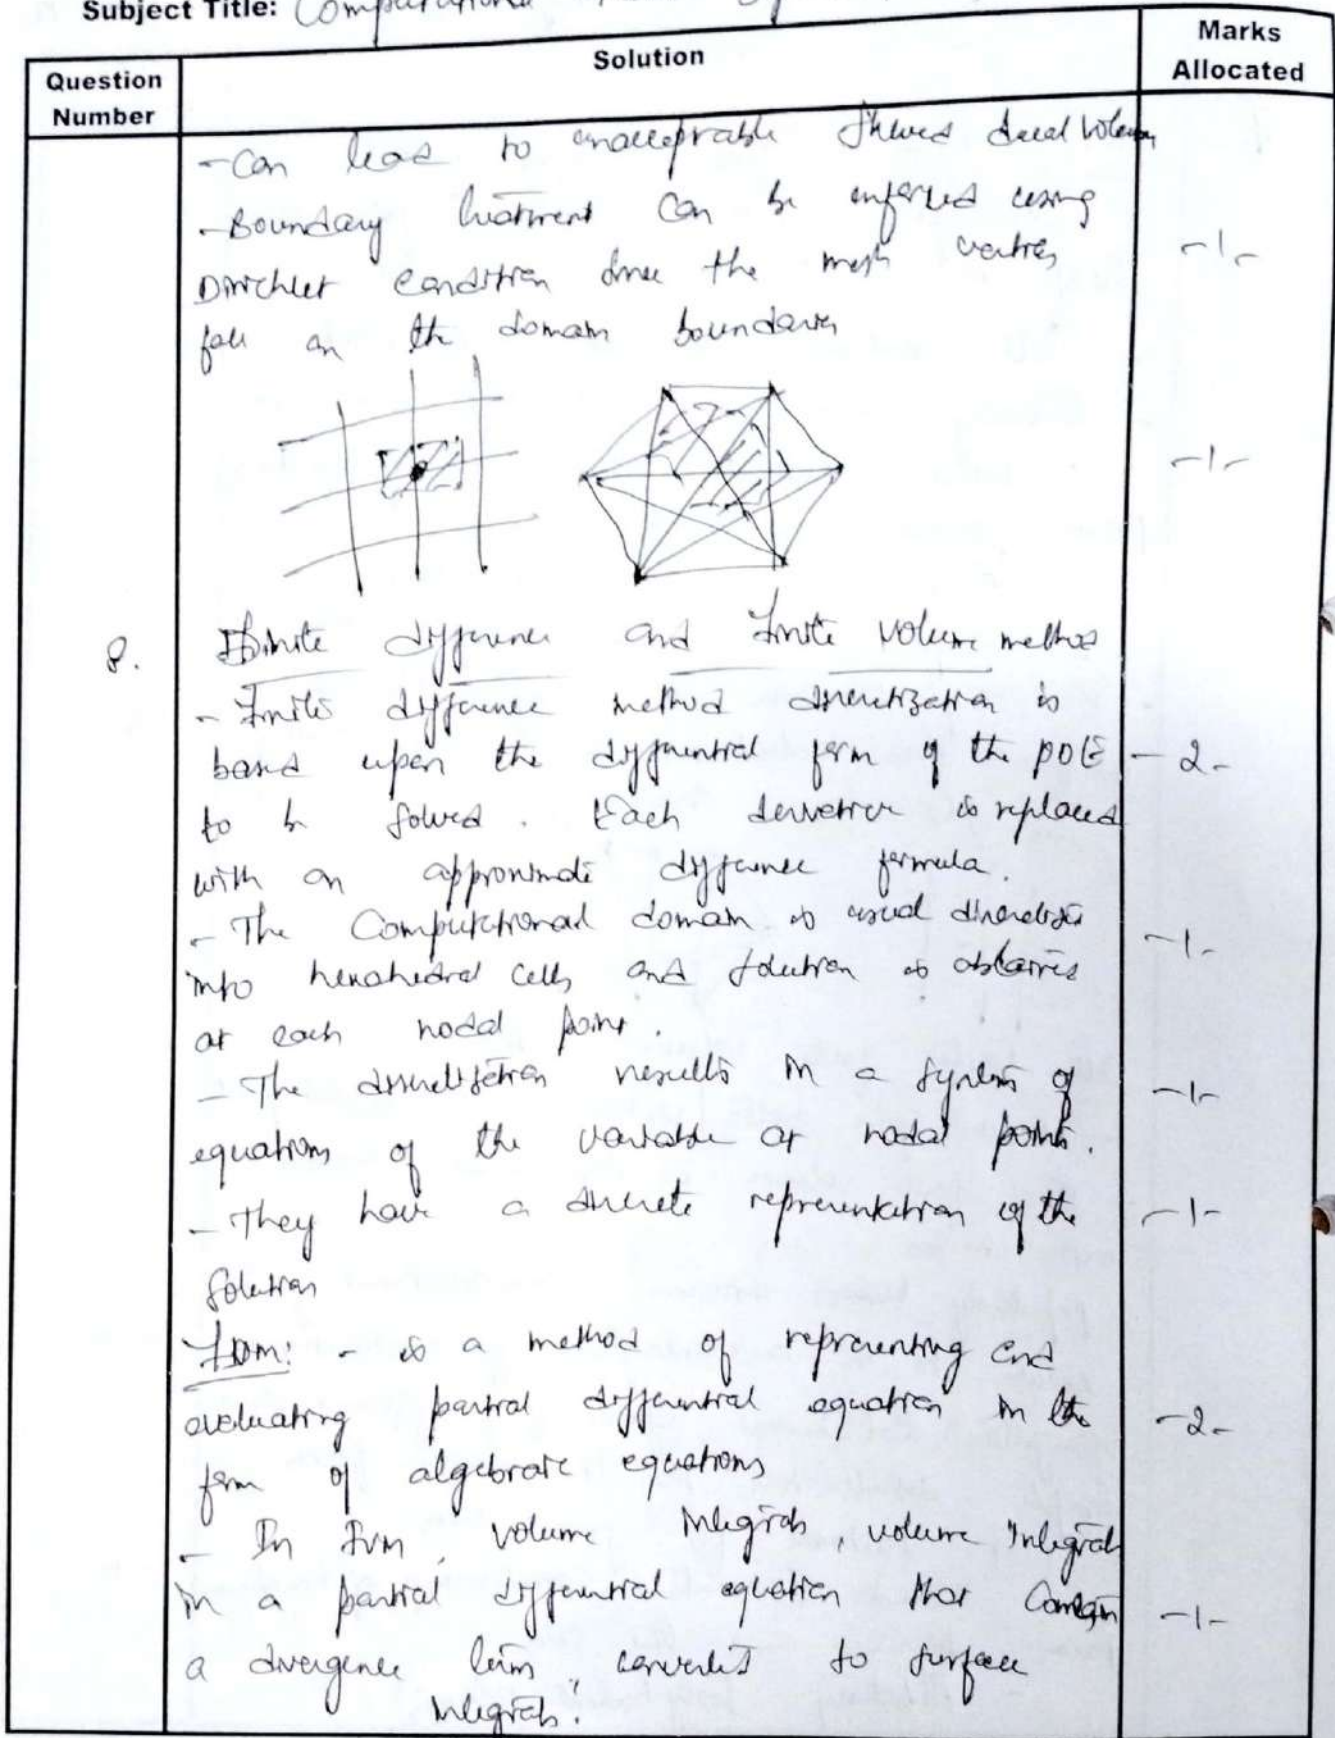 Subject Title:
Question Number
Solution
Marks Allocated
- Can lead to unacceptable skewed dual volume
- Boundary treatment can be enforced using
Dirichlet condition since the mesh vertices
fall on the domain boundaries
-1-
-1-
8.
Finite difference and Finite volume method
- Finite difference method discretization is
based upon the differential form of the PDE
-2-
to be solved. Each derivative is replaced
with an approximate difference formula.
- The Computational domain is usual
-1-
into hexahedral cells and solution is obtained
at each nodal point.
- The discretisation results in a system of
-1-
equations of the variable at nodal points.
- They have a discrete representation of the
-1-
Solution
- is a method of representing and
evaluating partial differential equation in the
-2-
form of algebraic equations
- In FVM, volume integrals, volume Integral
in a partial differential equation that contain
-1-
a divergence term, converted to surface
integrals.